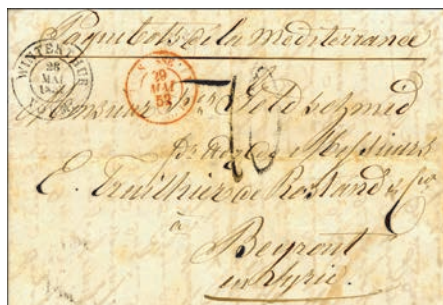 Paquebots de la méditerranée
WINTERTHUR
26
MAI
1852
29
MAI
52
Monsieur Goldschmid
10
Messieurs
E. Truilhier de Rostand & Cie
à
Beyrout
en Syrie.